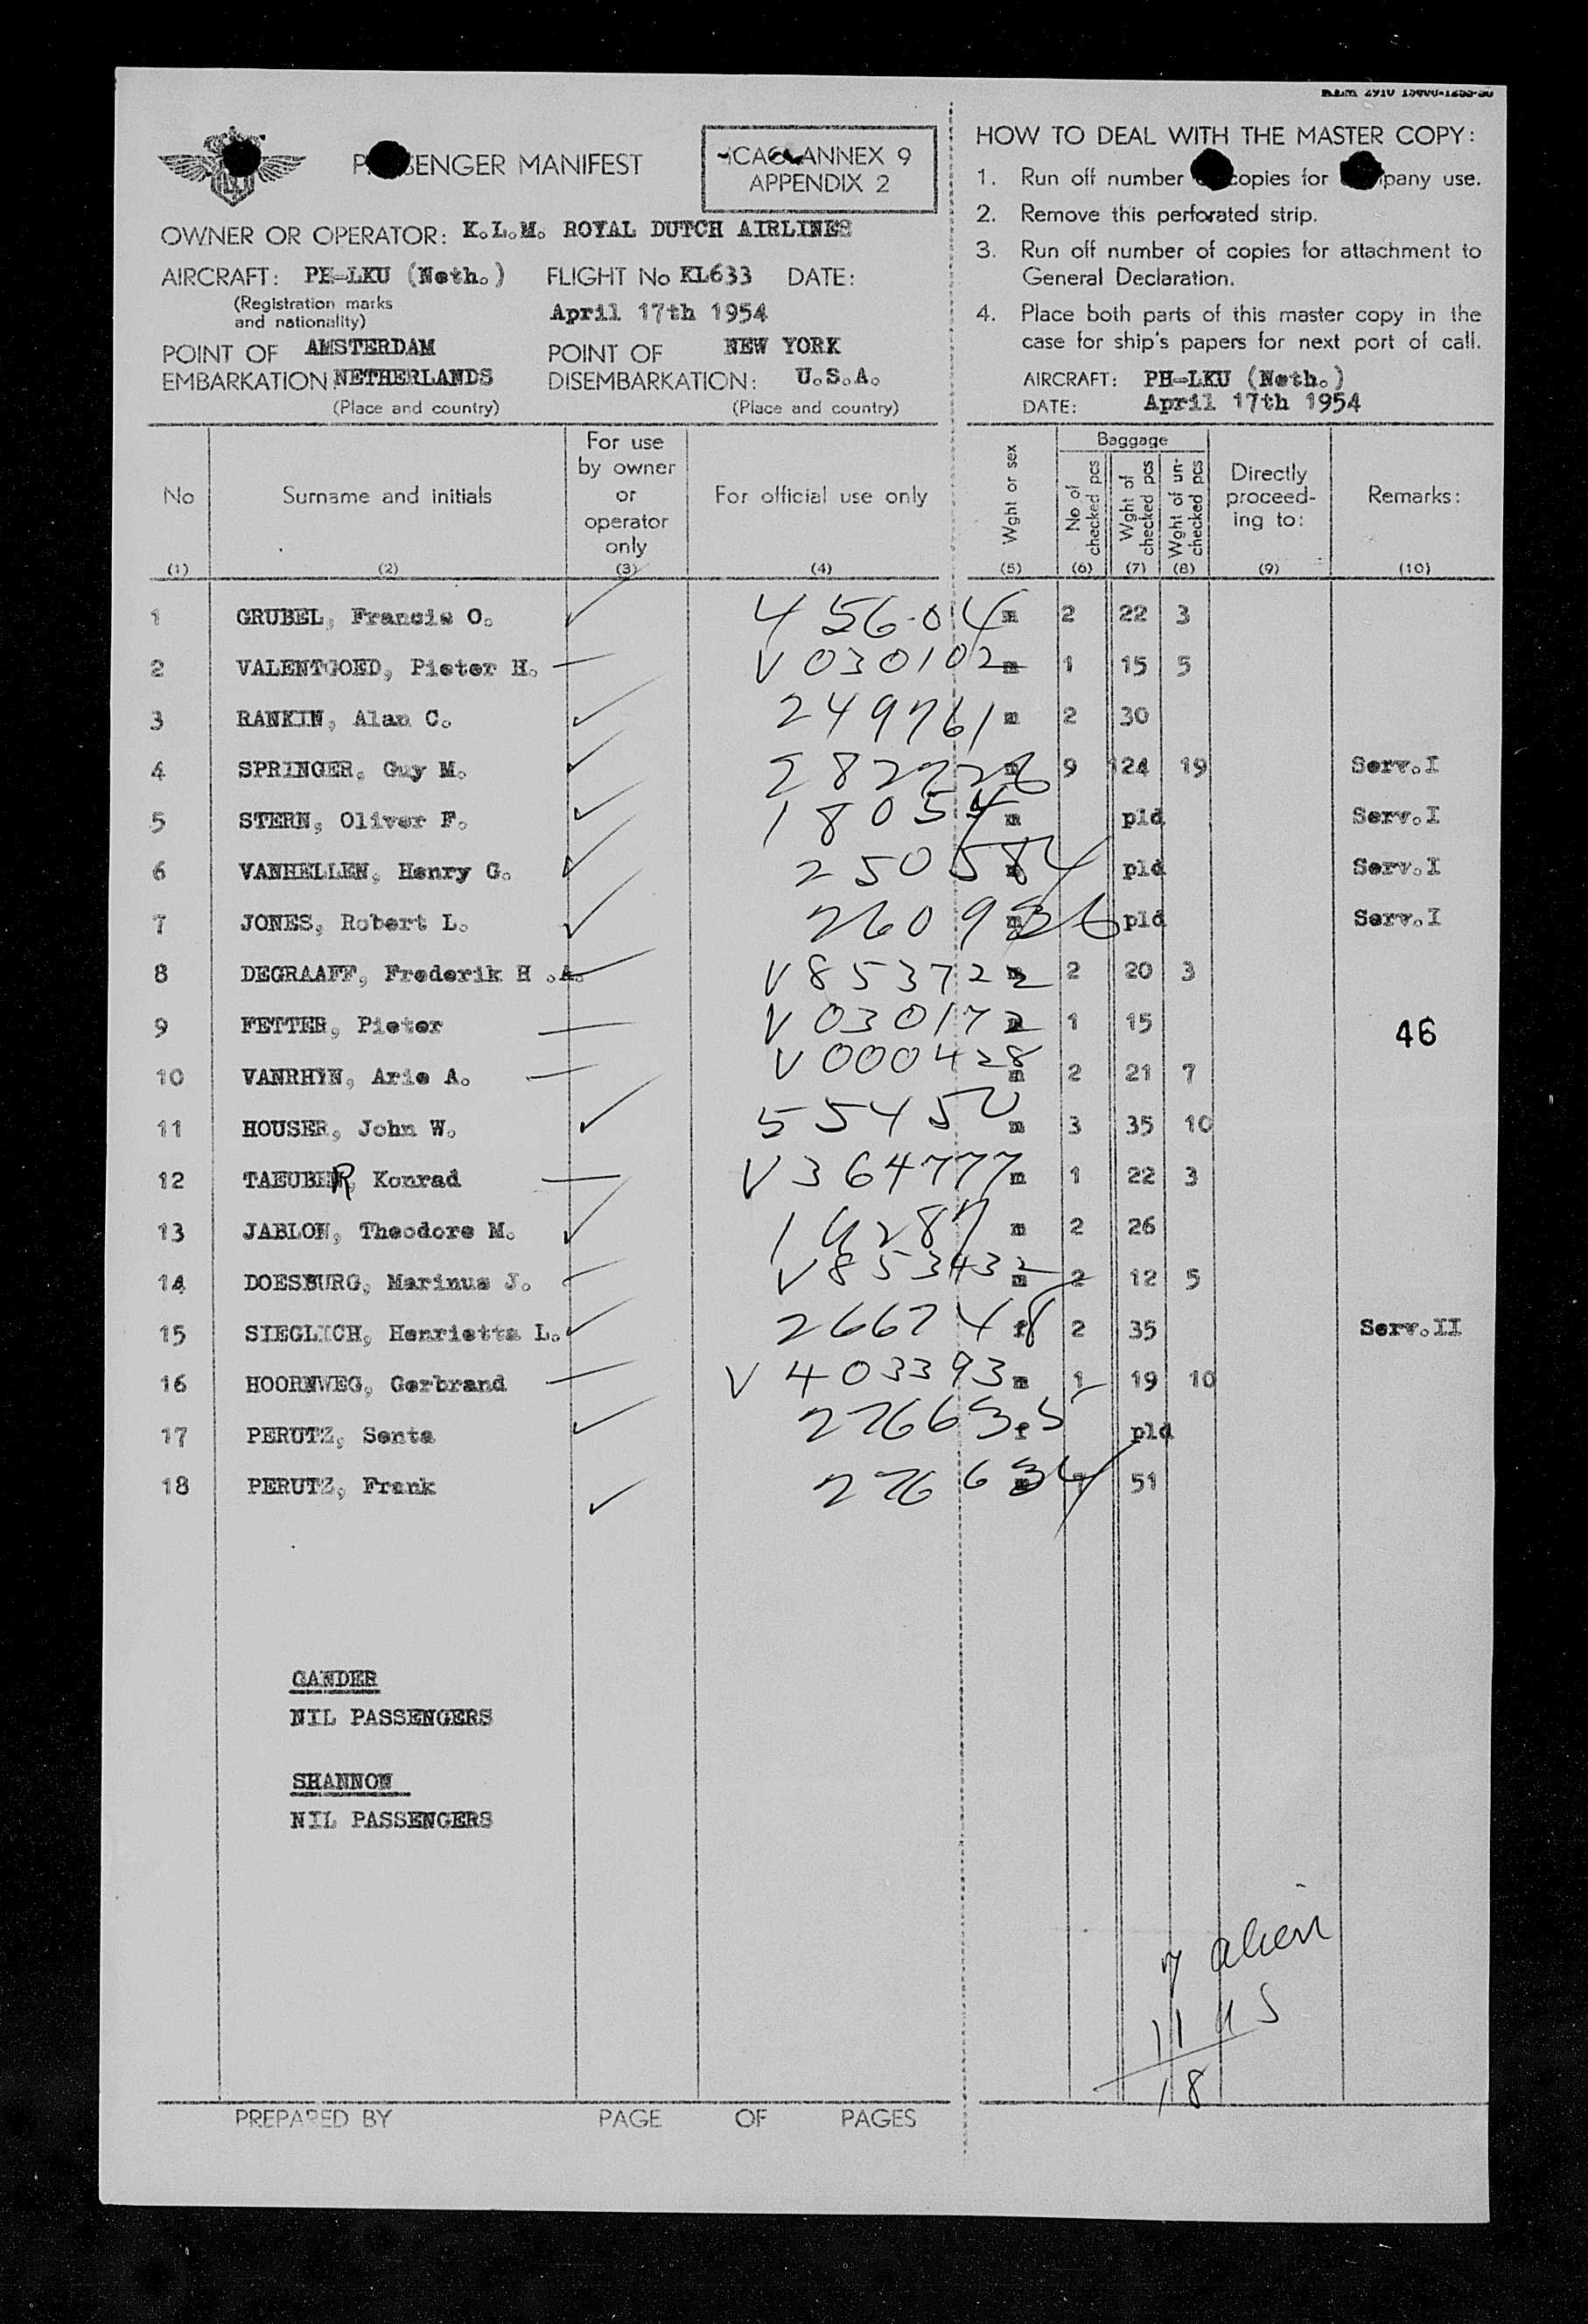 PASSENGER MANIFEST
ICAO ANNEX 9
APPENDIX 2
OWNER OR OPERATOR: K.L.M. ROYAL DUTCH AIRLINES
AIRCRAFT: PH-LKU (Neth.) FLIGHT No KL633 DATE:
(Registration marks
and nationality)
April 17th 1954
POINT OF AMSTERDAM POINT OF NEW YORK
EMBARKATION NETHERLANDS DISEMBARKATION: U.S.A.
(Place and country) (Place and country)
HOW TO DEAL WITH THE MASTER COPY:
1. Run off number of copies for company use.
2. Remove this perforated strip.
3. Run off number of copies for attachment to
General Declaration.
4. Place both parts of this master copy in the
case for ship's papers for next port of call.
AIRCRAFT: PH-LKU (Neth.)
DATE: April 17th 1954
No Surname and initials For use by owner or operator only For official use only Wght or sex Baggage No of checked pcs Wght of checked pcs Wght of un-checked pcs Directly proceed-ing to: Remarks:
(1) (2) (3) (4) (5) (6) (7) (8) (9) (10)
1 GRUBEL, Francis O. 45604 m 2 22 3
2 VALENTGOED, Pieter H. V030102 m 1 15 5
3 RANKIN, Alan C. 249761 m 2 30
4 SPRINGER, Guy M. m 9 124 19 Serv.I
5 STERN, Oliver F. 18054 m pld Serv.I
6 VANHELLEN, Henry G. 250584 m pld Serv.I
7 JONES, Robert L. 260936 m pld Serv.I
8 DEGRAAFF, Frederik H .A. V853722 m 2 20 3
9 FETTER, Pieter V030172 m 1 15
46
10 VANRHYN, Arie A. V000428 m 2 21 7
11 HOUSER, John W. 55450 m 3 35 10
12 TAEUBER, Konrad V364777 m 1 22 3
13 JABLON, Theodore M. m 2 26
14 DOESBURG, Marinus J. V853432 m 2 12 5
15 SIEGLICH, Henrietta L. 266748 f 2 35 Serv.II
16 HOORNWEG, Gerbrand V403393 m 1 19 10
17 PERUTZ, Senta 276635 f pld
18 PERUTZ, Frank 276634 m 7 51
GANDER
NIL PASSENGERS
SHANNON
NIL PASSENGERS
7 alien
11 US
18
PREPARED BY PAGE OF PAGES